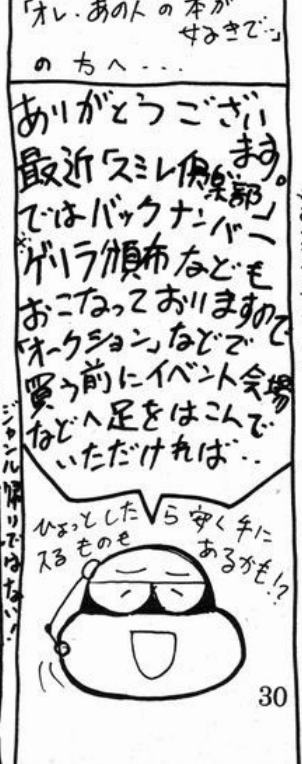 「オレ・あの人の本が
好きで…」
の方へ...
ありがとうござい
ます。
最近「スミレ倶楽部」
ではバックナンバー
※ゲリラ頒布なども
おこなっておりますので
「オークション」などで
買う前にイベント会場
などへ足をはこんで
いただければ..
ひょっとしたら安く手に
入るものも
あるかも!?
ジャンル帰りではない!
30